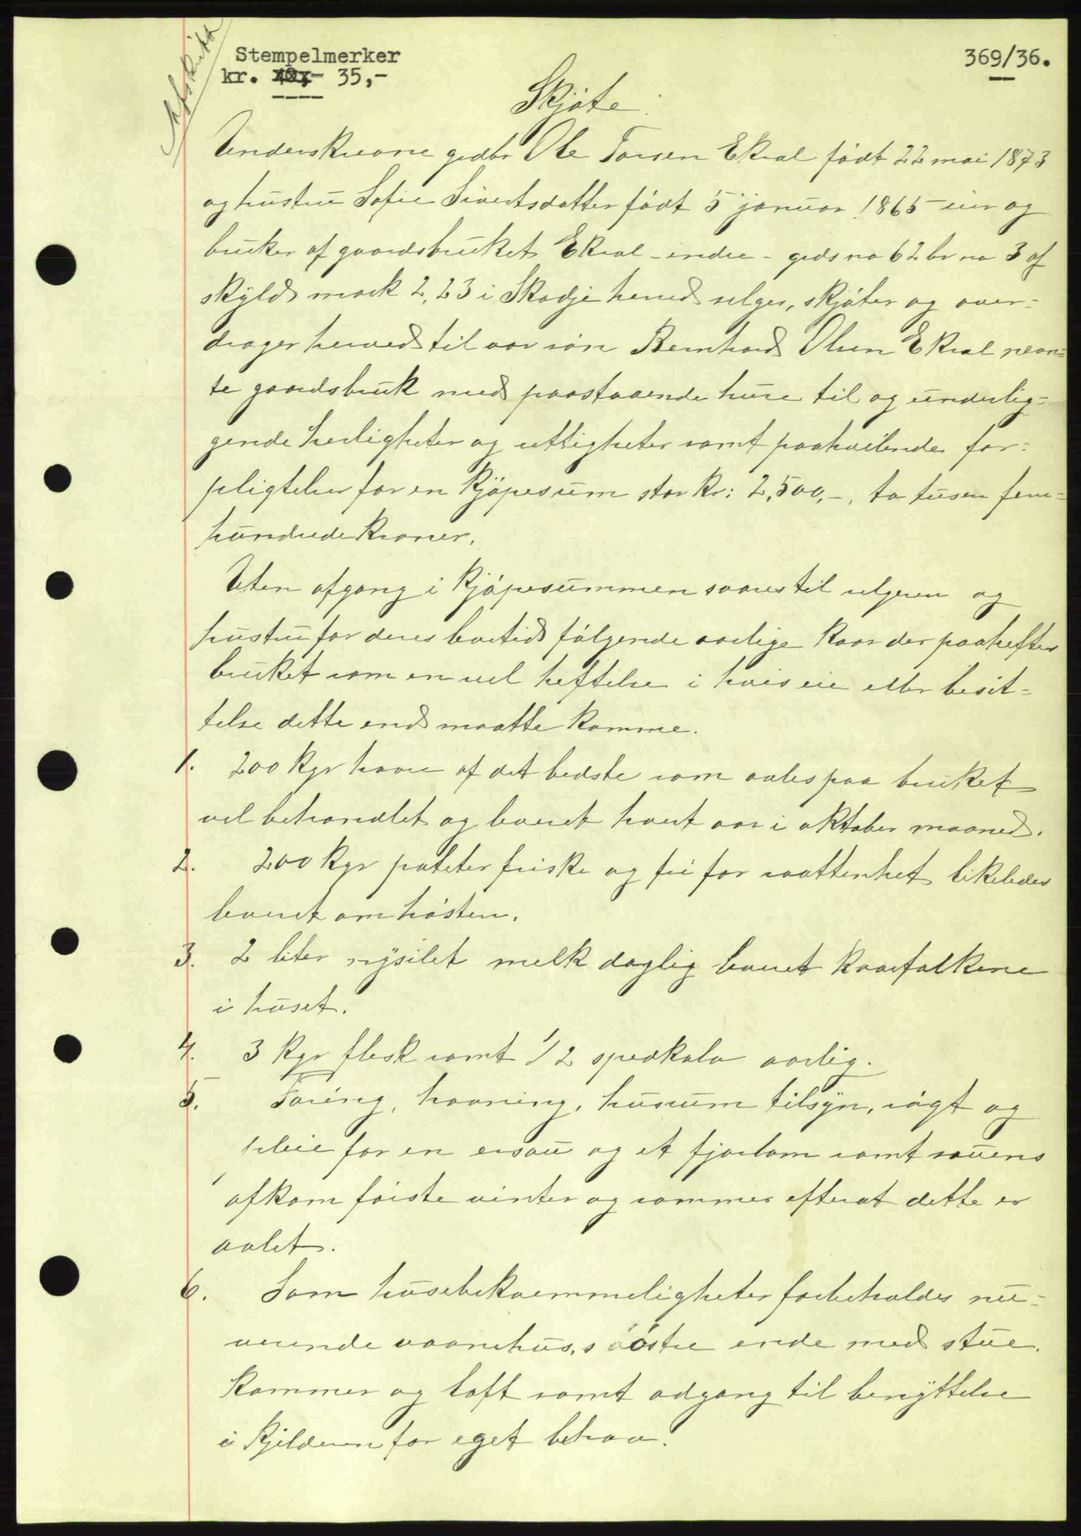 Afskrift
Stempelmerker
kr. 40,- 35,-
369/36.
Skjøte
Underskrevne gaardbr Ole Larsen Ekval født 22 mai 1873
og hustru Sofie Sivertsdatter født 5 januar 1865 eier og
bruker af gaardsbruket Ekval - indre - gards no 62 br no 3 af
skyld mark 2,23 i Skodje herred selger, skjøter og over-
drager herved til vor søn Bernhard Olsen Ekval nevn-
te gaardsbruk med paastaaende huse til og underlig-
gende herligheter og rettigheter samt paahvilende for-
pligtelser for en kjøpesum stor kr: 2,500,-, to tusen fem-
hundrede kroner.
Uten afgang i kjøpesummen svares til selgeren og
hustru for deres levetid følgende aarlige kaar der paahefter
bruket som en reel heftelse i hvis eie eller besit-
telse dette end maatte komme.
1. 200 kgr havre af det bedste som avles paa bruket
vel behandlet og levert hvert aar i oktober maaned.
2. 200 kgr poteter friske og fri for raattenhet likeledes
levert om høsten.
3. 2 liter nysilet melk daglig levert kaarfolkene
i huset.
4. 3 kgr flesk samt 1/2 spedkalv aarlig.
5. Foring, havning, husrum tilsyn, røgt og
pleie for en ersau og et fjorlam samt sauens
afkom første vinter og sommer efterat dette er
avlet.
6. Som husebekvemmeligheter forbeholdes nu-
værende vaanehus,s østre ende med stue,
kammer og loft samt adgang til benyttelse
i kjelderen for eget behov.